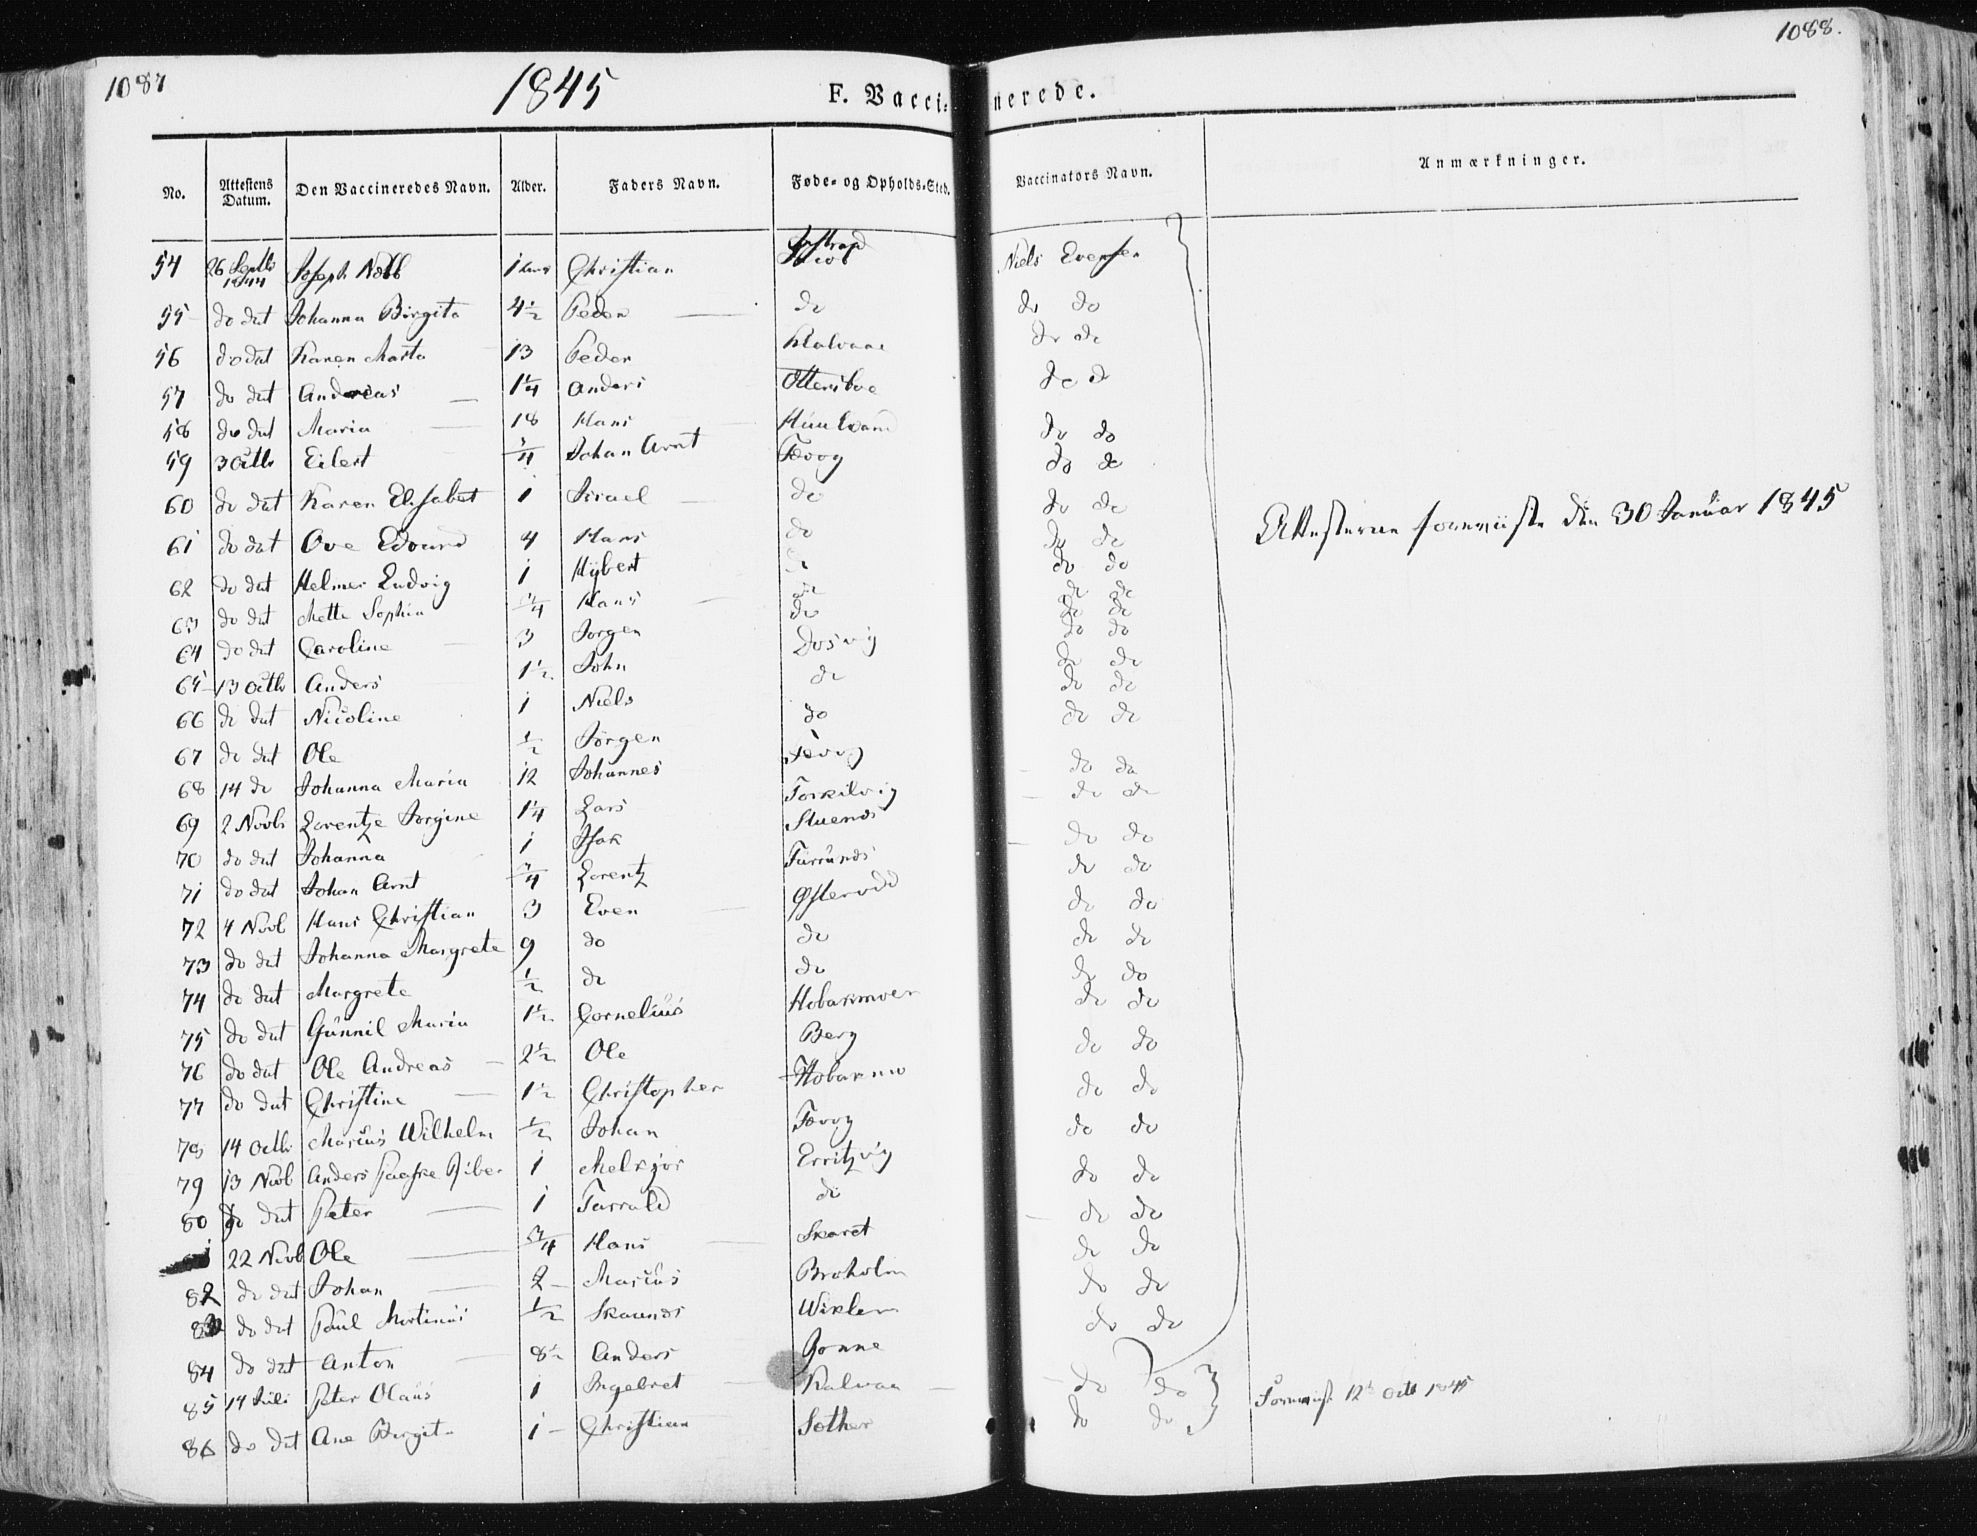 1087
1845
F. Vaccinerede.
1088.
No. Attestens Datum. Den Vaccineredes Navn. Alder. Faders Navn. Føde- og Opholds-Sted. Vaccinators Navn. Anmærkninger.
54 26 Septb 1844 Joseph 1 Christian Niels Evensen
55 do dat Johanna Birgita 4½ Peder do do do
56 do dat Karen Marta 13 Peder Kalvaae do do
57 do dat Andreas 1¼ Anders Ottersboe do do
58 do dat Maria 18 Hans do do
59 3 Octb Eilert ¾ Johan Arnt Tævog do do
60 do dat Karen Elisabet 1 Israel do do do
61 do dat Ove Edvard 4 Hans do do do
Attesterne foreviiste den 30 Januar 1845
62 do dat Helmer Ludvig 1 Hybert do do do
63 do dat Mette Sophia ¾ Hans do do do
64 do dat Caroline 3 Jørgen Dosvig do do
65 13 Octb Anders 1½ John do do do
66 do dat Nicoline 1 Niels do do do
67 do dat Ole ½ Jørgen Tævog do do
68 14 do Johanna Maria 12 Johannes Torkilvig do do
69 2 Novb Lorentze Jorgine 1¼ Lars Stuends do do
70 do dat Johanna 1 Isak Turrunds do do
71 do dat Johan Arnt ¾ Lorentz Østerodd do do
72 4 Novb Hans Christian 3 Even do do
73 do dat Johanna Margrete 9 do do do do
74 do dat Margrete ½ do do do do
75 do dat Gunnil Maria 1½ Cornelius Hobakmoen do do
76 do dat Ole Andreas 2½ Ole Berg do do
77 do dat Christine 1½ Christopher Hobakmo do do
78 14 Octb Marius Wilhelm ½ Johan Tævog do do
79 13 Novb Anders Paaske Riber 1 Melkjor Erritzvig do do
80 do dat Peter 1 Tarrald do do do
22 Novb Ole ¾ Hans Skaret do do
82 do dat Johan 2 Marius Broholm do do
83 do dat Paul Martinus ½ Skaunds Wiklem do do
84 do dat Anton 8½ Anders Gonne
85 14 Juli Peter Olaus 1 Ingebret Kalvaa do do
Foreviist 12te Octb 1845
86 do dat Ane Birgit 1 Christian Sother do do